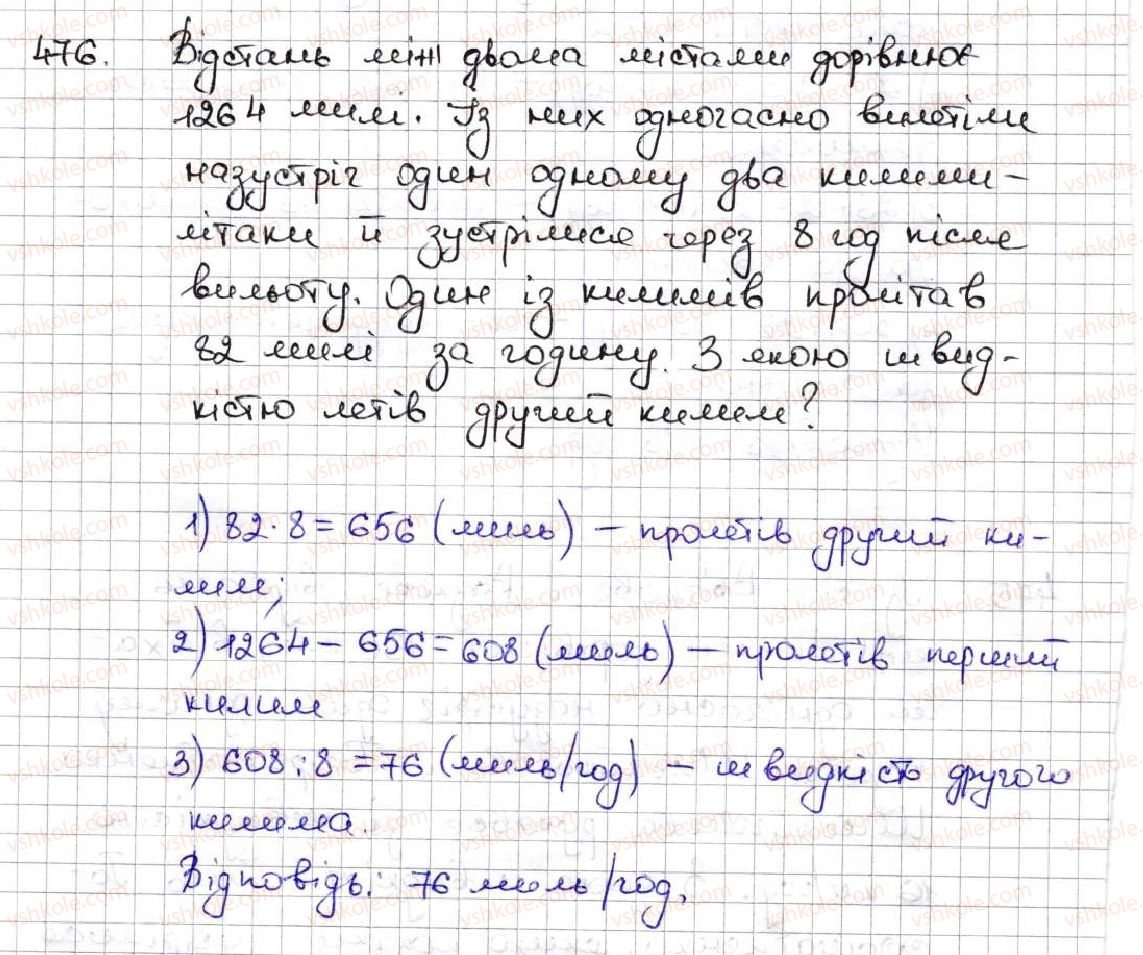 476. Відстань між двома містами дорівнює
1264 милі. Із них одночасно вилетіли
назустріч один одному два килими-
літаки й зустрілися через 8 год після
вильоту. Один із килимів пролітав
82 милі за годину. З якою швид-
кістю летів другий килим?
1) 82 · 8 = 656 (миль) – пролетів другий ки-
лим;
2) 1264 – 656 = 608 (миль) – пролетів перший
килим
3) 608 : 8 = 76 (миль/год) – швидкість другого
килима.
Відповідь: 76 миль/год.